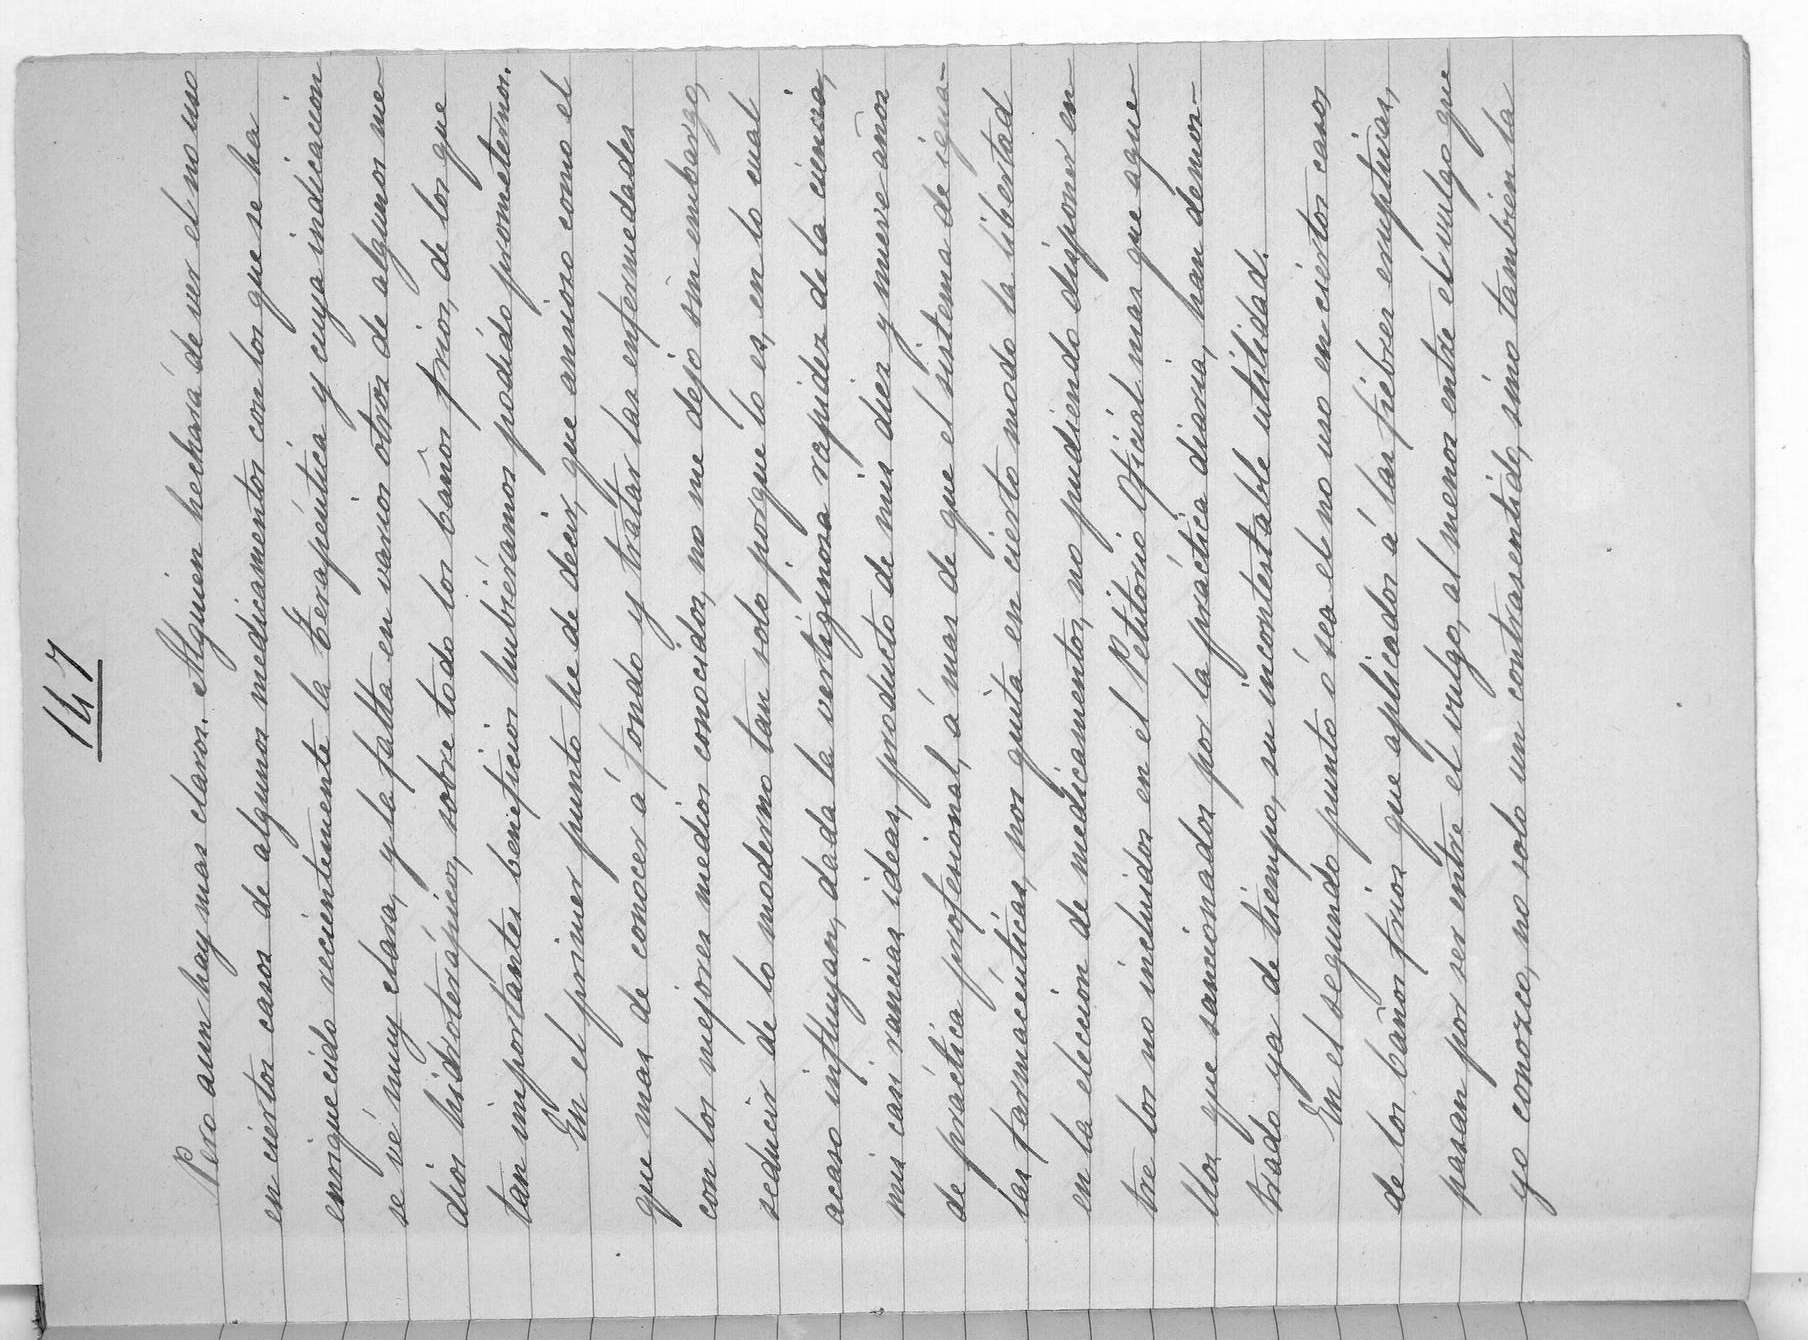 147
Pero aun hay mas claros. Alguien hechará de ver el no uso
en ciertos casos de algunos medicamentos con los que se ha
enriquecido recientemente la Terapéutica y cuya indicacion
se vé muy clara, y la falta en varios otros de algunos me-
dios hidroterápicos, sobre todo los baños frios, de los que
tan importantes beneficios hubiéramos podido prometernos.
En el primer punto he de decir, que ansioso como el
que mas de conocer á fondo y tratar las enfermedades
con los mejores medios conocidos, no me dejo sin embargo,
seducir de lo moderno tan solo porque lo es, en lo cual
acaso influyan, dada la vertiginosa rapidez de la ciencia,
mis casi rancias ideas, producto de mis diez y nueve años
de práctica profesional, á mas de que el sistema de igua-
las farmacéuticas, nos quita en cierto modo la libertad
en la eleccion de medicamentos, no pudiendo disponer en-
tre los no incluidos en el Petitorio Oficial mas que aque-
llos que sancionados por la práctica diaria, han demos-
trado ya de tiempo, su incontestable utilidad.
En el segundo punto ó sea el no uso en ciertos casos
de los baños frios que aplicados á las fiebres eruptivas,
pasan por ser entre el vulgo, al menos entre el vulgo que
yo conozco, no solo un contrasentido, sino tambien la